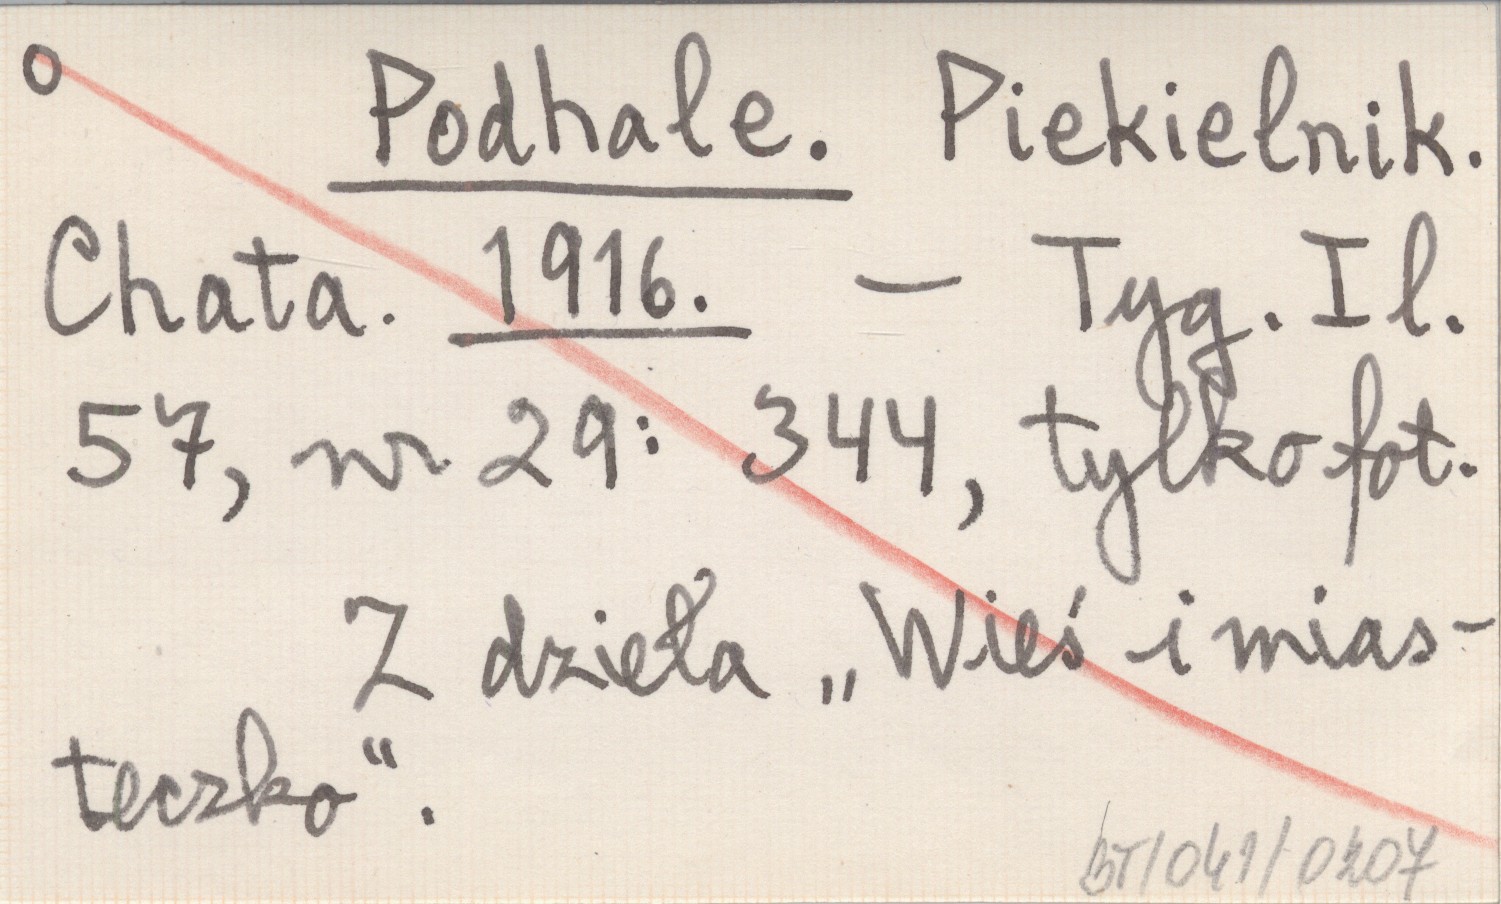 o Podhale. Piekielnik.
Chata. 1916. — Tyg. Il.
57, nr 29: 344, tylko fot.
Z dzieła „Wieś i mias-
teczko“.
BT/041/0207